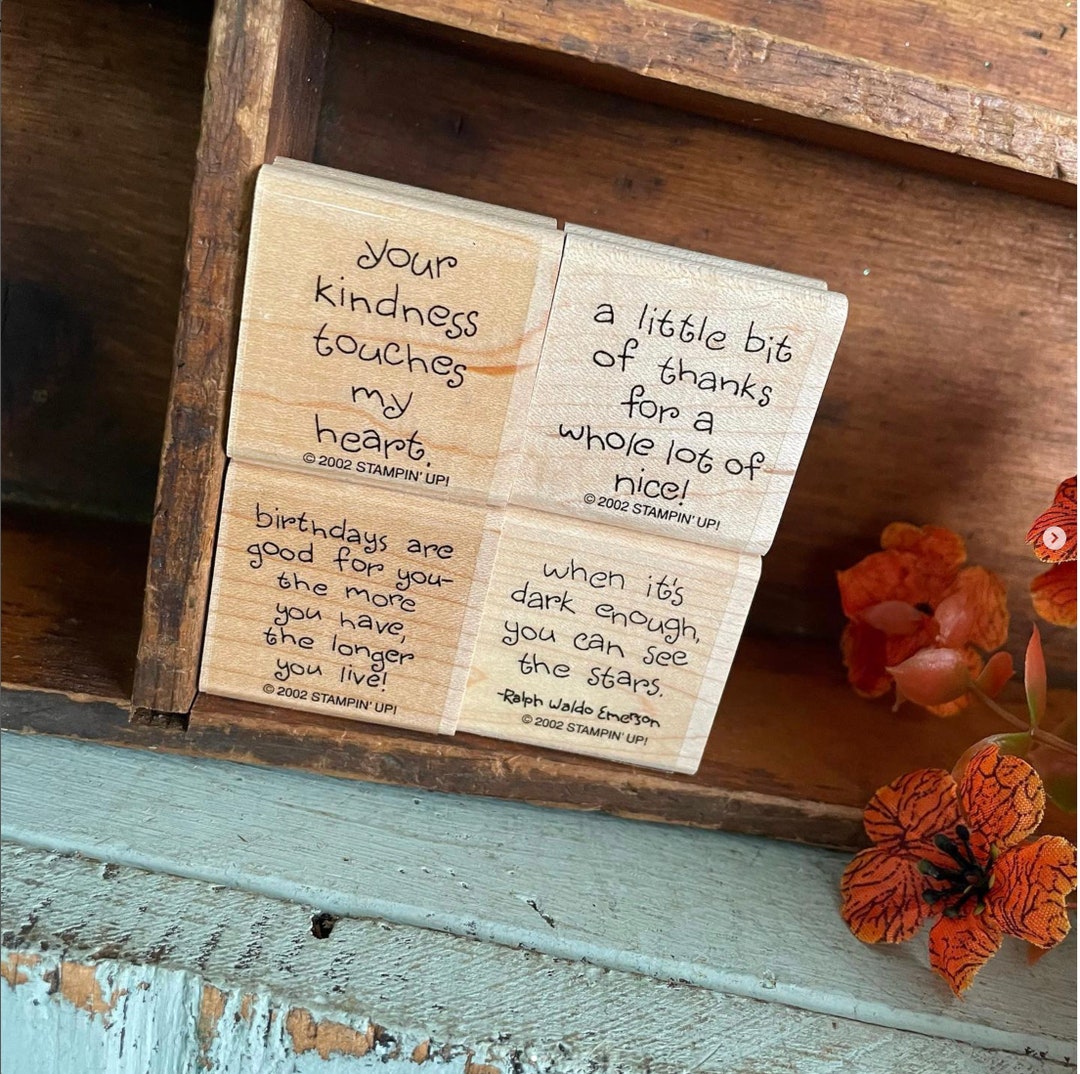 your
kindness
touches
my
heart.
© 2002 STAMPIN' UP!
a little bit
of thanks
for a
whole lot of
nice!
© 2002 STAMPIN' UP!
birthdays are
good for you-
the more
you have,
the longer
you live!
© 2002 STAMPIN' UP!
when it's
dark enough,
you can see
the stars.
-Ralph Waldo Emerson
© 2002 STAMPIN' UP!